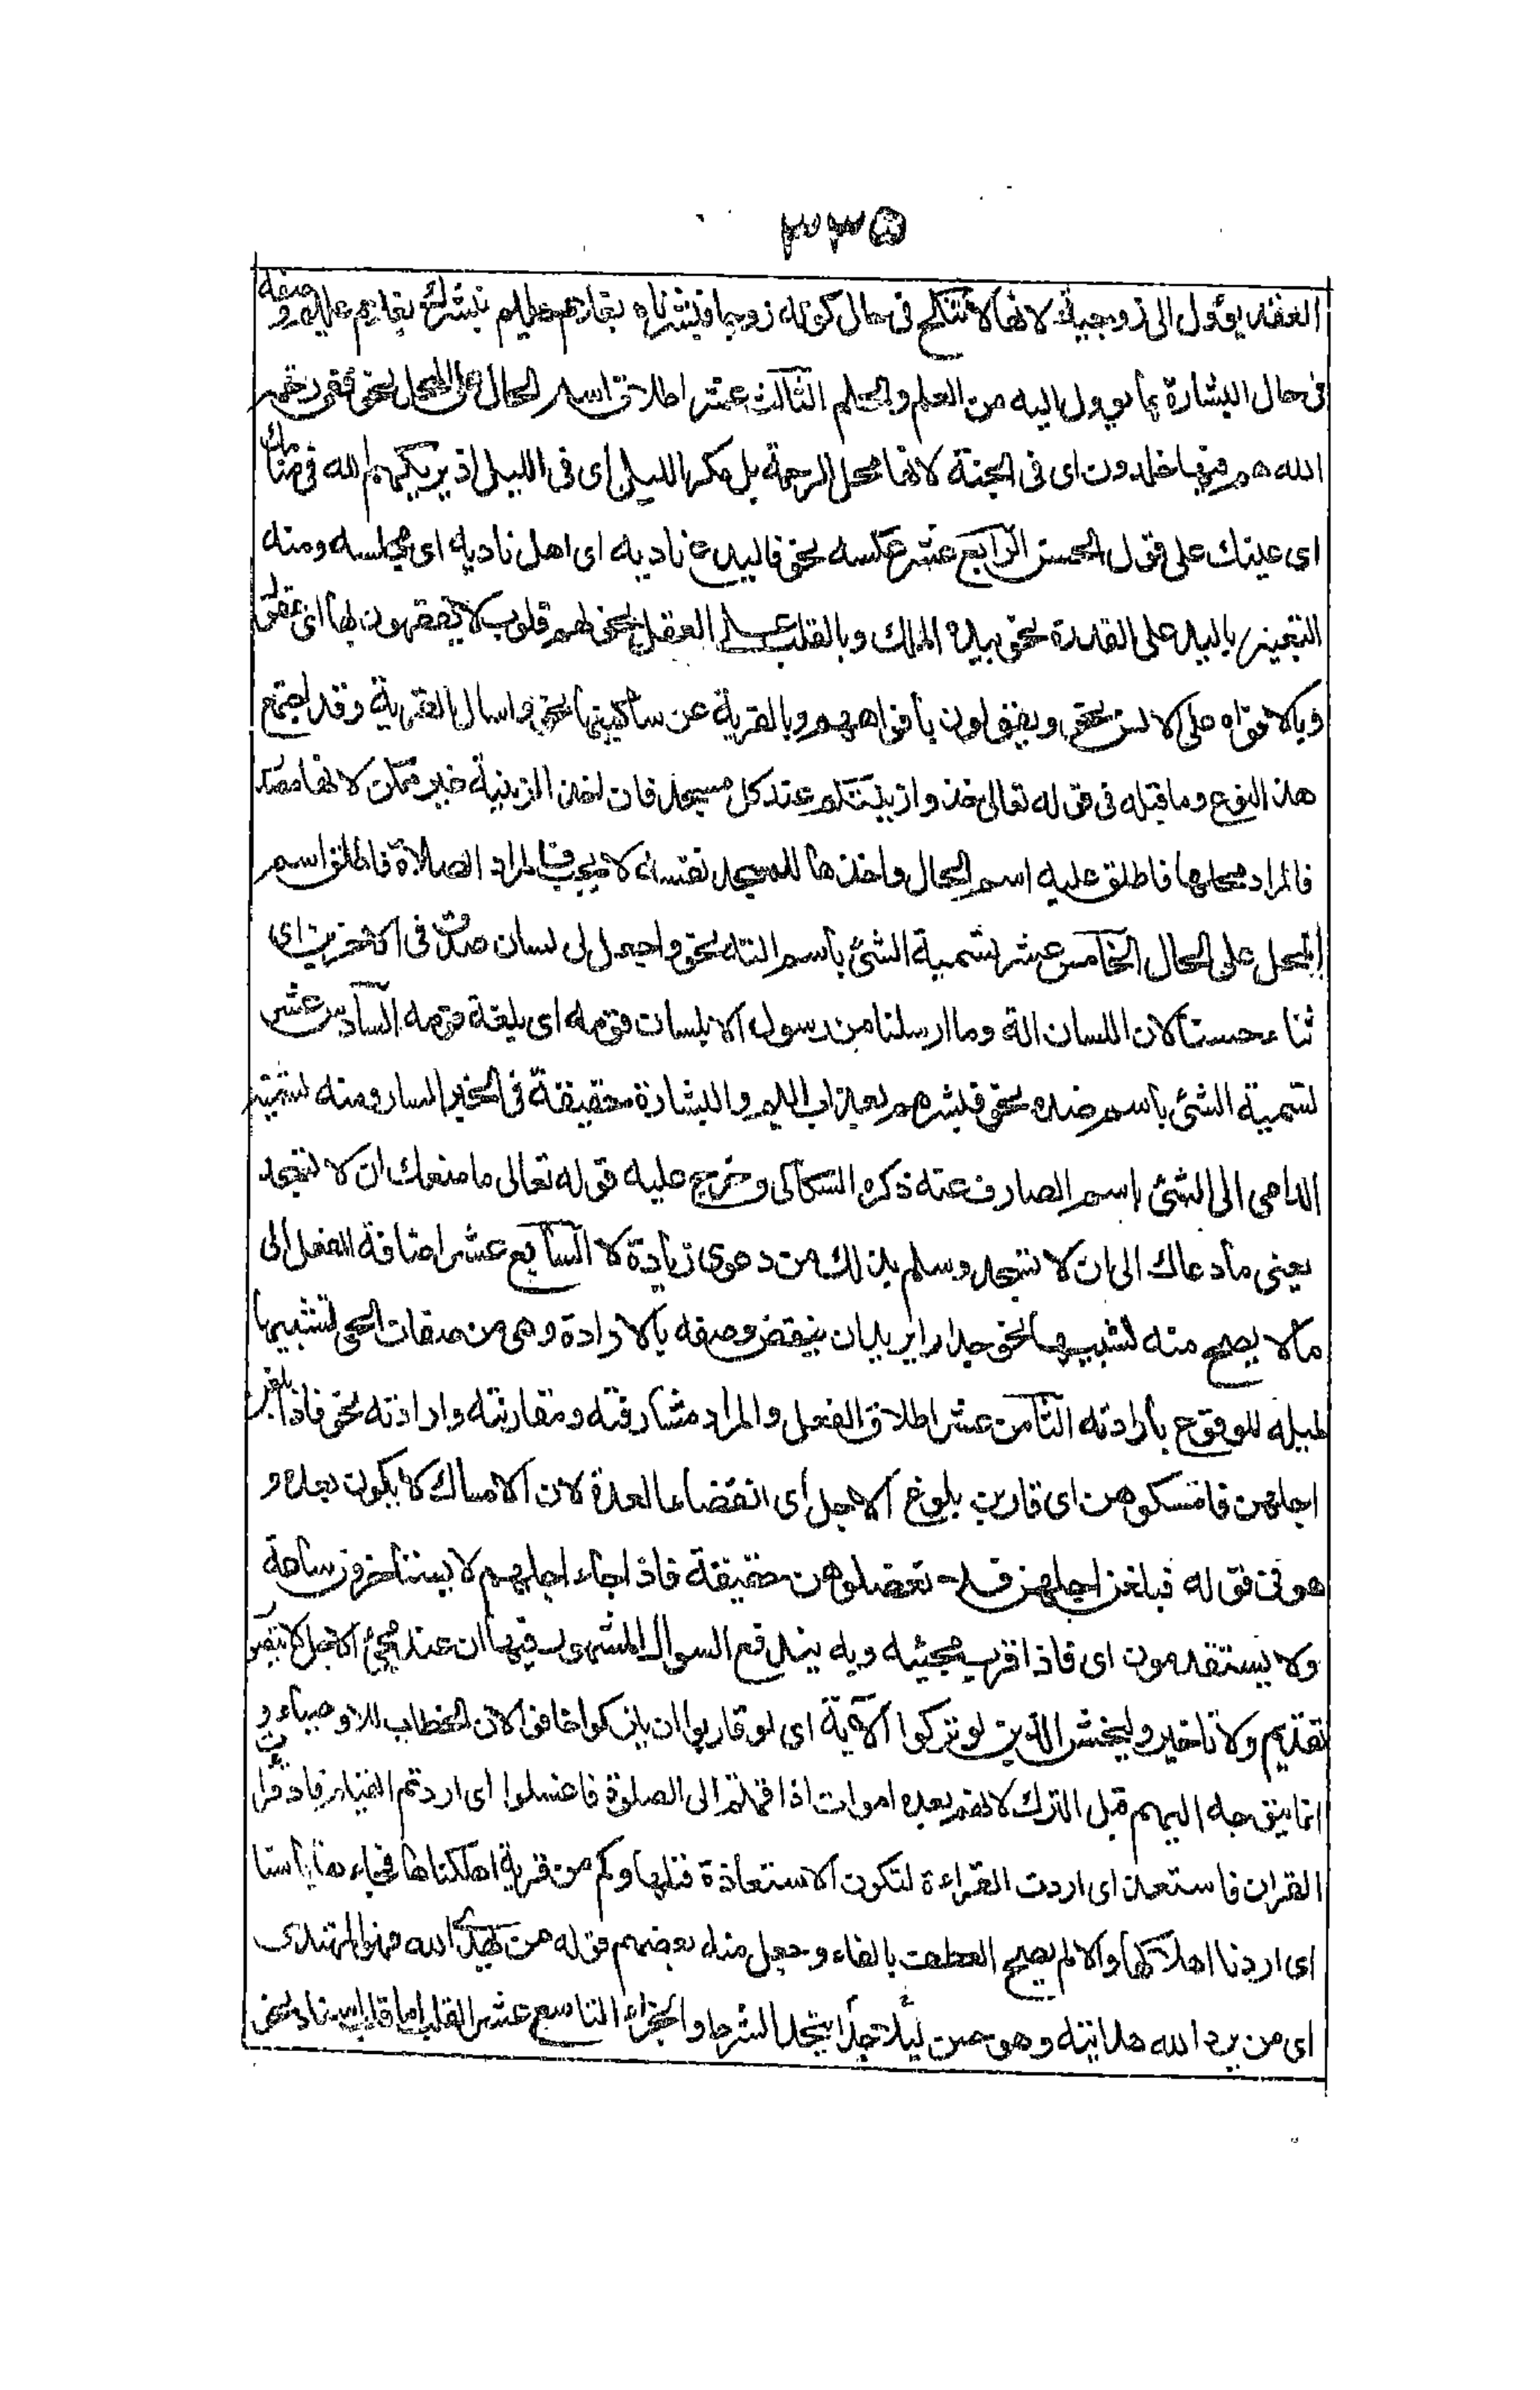 ٣٣٥
العقد يؤول الى زوجية لانها لا تنكح فى حال كونه زوجا فبشرناه بغلام حليم نبشرك بغلام عليم وصفه
فى حال البشارة بما يوول اليه من العلم والحلم الثالث عشر اطلاق اسم الحال على المحل نحو ففى رحمة
الله هم فيها خلدون اى فى الجنة لانها محل الرحمة بل مكر الليل اى فى الليل اذ يريكهم الله فى منامك
اى عينك على قول الحسن الرابع عشر عكسه نحو فاليدع ناديه اى اهل ناديه اى مجلسه ومنه
التعبير باليد على القدرة نحو بيده الملك وبالقلب على العقل نحو لهم قلوب لا يفقهون بها اى عقول
وبالافواه على الالسن نحو ويقولون بافواههم وبالقرية عن ساكنيها نحو واسال القرية وقد اجتمع
هذا النوع وما قبله فى قوله تعالى خذوا زينتكم عند كل مسجد فان اخذ الزينة غير ممكن لانها مصدر
فالمراد محلها فاطلق عليه اسم الحال واخذها للمسجد نفسه لا يجب فالمراد الصلاة فاطلق اسم
المحل على الحال الخامس عشر تسمية الشئ باسم الته نحو واجعل لى لسان صدق فى الاخرين اى
ثناء حسنا لان اللسان الة وما ارسلنا من رسول الا بلسان قومه اى بلغة قومه السادس عشر
تسمية الشئ باسم ضده نحو فبشرهم بعذاب اليم والبشارة حقيقة فى الخبر السار ومنه تسمية
الداعى الى الشئ باسم الصارف عنه ذكره السكاكى وخرج عليه قوله تعالى ما منعك ان لا تسجد
يعنى ما دعاك الى ان لا تسجد وسلم بذلك من دعوى زيادة لا السابع عشر اضافة الفعل الى
ما لا يصح منه تشبيها نحو جدارا يريد ان ينقض وصفه بالارادة وهى من صفات الحى تشبيها
لميله للوقوع بارادته الثامن عشر اطلاق الفعل والمراد مشارفته ومقاربته وارادته نحو فاذا بلغن
اجلهن فامسكوهن اى قاربن بلوغ الاجل اى انقضاء العدة لان الامساك لا يكون بعده و
هو فى قوله فبلغن اجلهن فلا تعضلوهن حقيقة فاذا جاء اجلهم لا يستأخرون ساعة
ولا يستقدمون اى فاذا قرب مجيئه وبه يندفع السوال المشهور فيها ان عند مجئ الاجل لا يتصور
تقديم ولا تاخير وليخش الذين لو تركوا الآية اى لو قاربوا ان يتركوا خافوا لان الخطاب للاوصياء و
انما يتوجه اليهم قبل الترك لانهم بعده اموات اذا قمتم الى الصلوة فاغسلوا اى اردتم القيام فاذا قرأت
القران فاستعذ اى اردت القراءة لتكون الاستعاذة قبلها وكم من قرية اهلكناها فجاءها باسنا
اى اردنا اهلاكها والا لم يصح العطف بالفاء وجعل منه بعضهم قوله من يهد الله فهو المهتدى
اى من يرد الله هدايته وهو حسن لئلا يتحد الشرط والجزاء التاسع عشر القلب اما قلب اسناد نحو